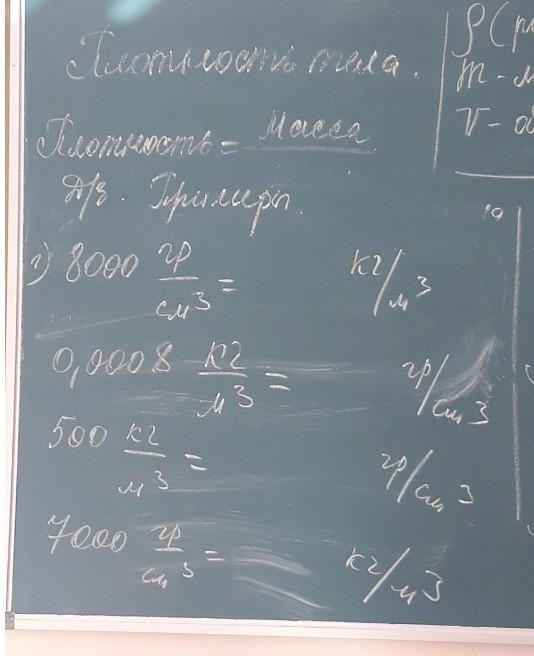 Плотность тела.
Плотность = Масса
Д/з. Примеры.
1) 8000 гр/см³ = кг/м³
0,0008 кг/м³ = гр/см³
500 кг/м³ = гр/см³
7000 гр/см³ = кг/м³
ρ (
m - м
V - об